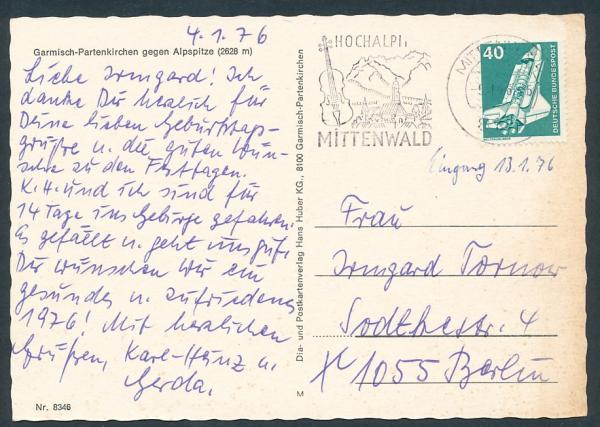 4.1.76
Garmisch-Partenkirchen gegen Alpspitze (2628 m)
Liebe Irmgard! Ich
danke Dir herzlich für
Deine lieben Geburtstags-
grüße u. die guten Wün-
sche zu den Festtagen.
K.H. und ich sind für
14 Tage ins Gebirge gefahren.
Es gefällt u. geht uns gut.
Dir wünschen wir ein
gesundes u. zufriedenes
1976! Mit herzlichen
Grüßen, Karl-Heinz u.
Gerda.
Nr. 8346
Dia- und Postkartenverlag Hans Huber KG., 8100 Garmisch-Partenkirchen
M
HOCHALPI.
MITTENWALD
40
DEUTSCHE BUNDESPOST
Eingang 13.1.76
Frau
Irmgard Tornow
Str. 4
1055 Berlin